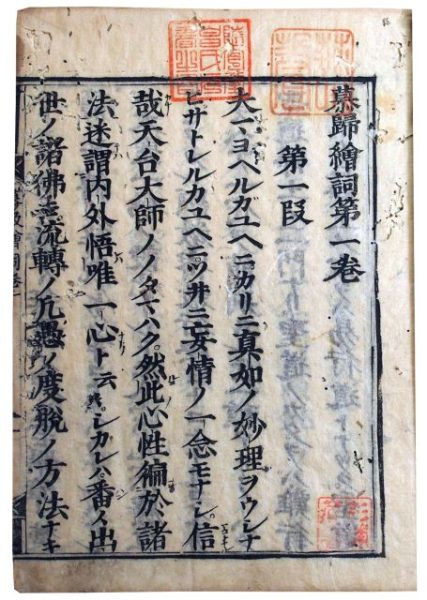 慕歸繪詞第一巻
第一段
マヨヘルガユヘニカリニ真如ノ妙理ヲウシナ
ヒサトレルカユヘニツ井ニ妄情ノ一念モナシ信
哉天台大師ノノタマハク然此心性徧於諸
法迷謂内外悟唯一心ト云シカレハ番々出
世ノ諸佛流轉ノ凡愚度脱ノ方法ナキ